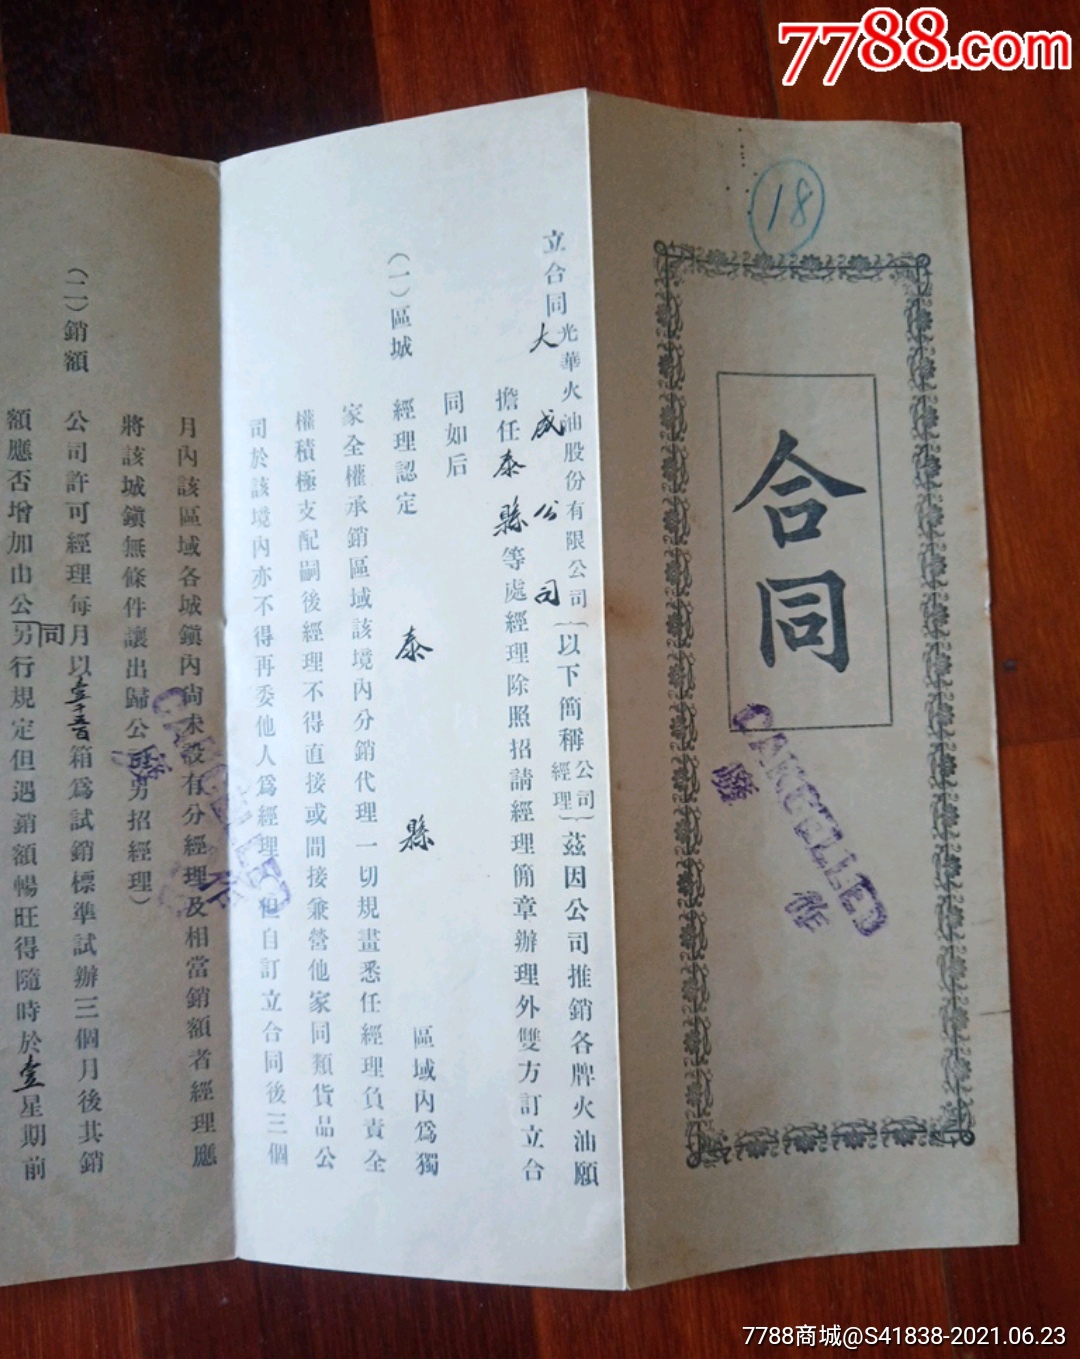 7788.com
18
合同
CANCELLED
廢作
立合同光華火油股份有限公司大成公司(以下簡稱公司經理)茲因公司推銷各牌火油願
擔任泰縣等處經理除照招請經理簡章辦理外雙方訂立合
同如后
(一)區域 經理認定 泰縣 區域內爲獨
家全權承銷區域該境內分銷代理一切規畫悉任經理負責全
權積極支配嗣後經理不得直接或間接兼營他家同類貨品公
司於該境內亦不得再委他人爲經理(但自訂立合同後三個
月內該區域各城鎮內尚未設有分經理及相當銷額者經理應
將該城鎮無條件讓出歸公司另招經理)
(二)銷額 公司許可經理每月以壹千五百箱爲試銷標準試辦三個月後其銷
額應否增加由公司另行規定但遇銷額暢旺得隨時於壹星期前
7788商城@S41838-2021.06.23